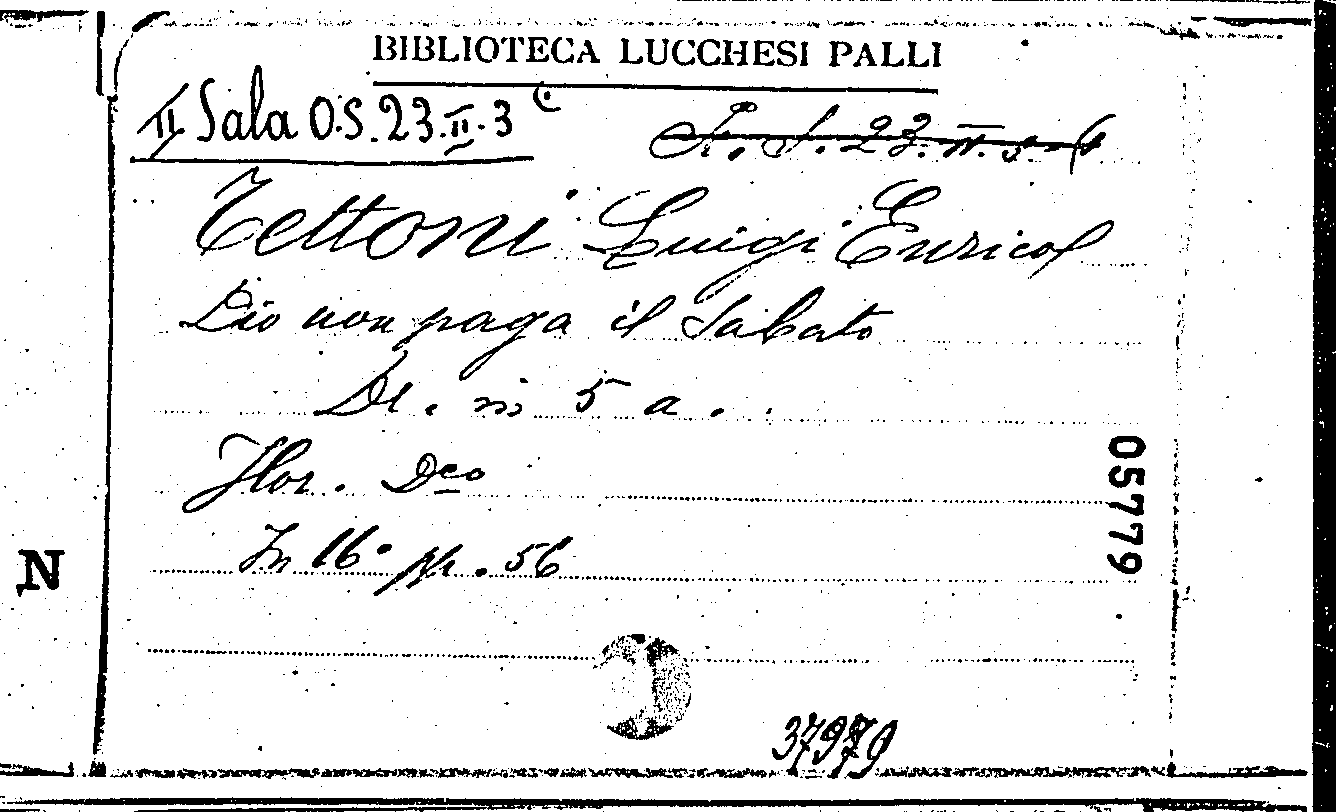 BIBLIOTECA LUCCHESI PALLI
II Sala O.S.23.II.3
S. 23. II. 3
Tettoni Luigi Enrico
Dio non paga il Sabato
Dr. in 5 a.
Flor. Dco
05779
In 16° pp. 56
N